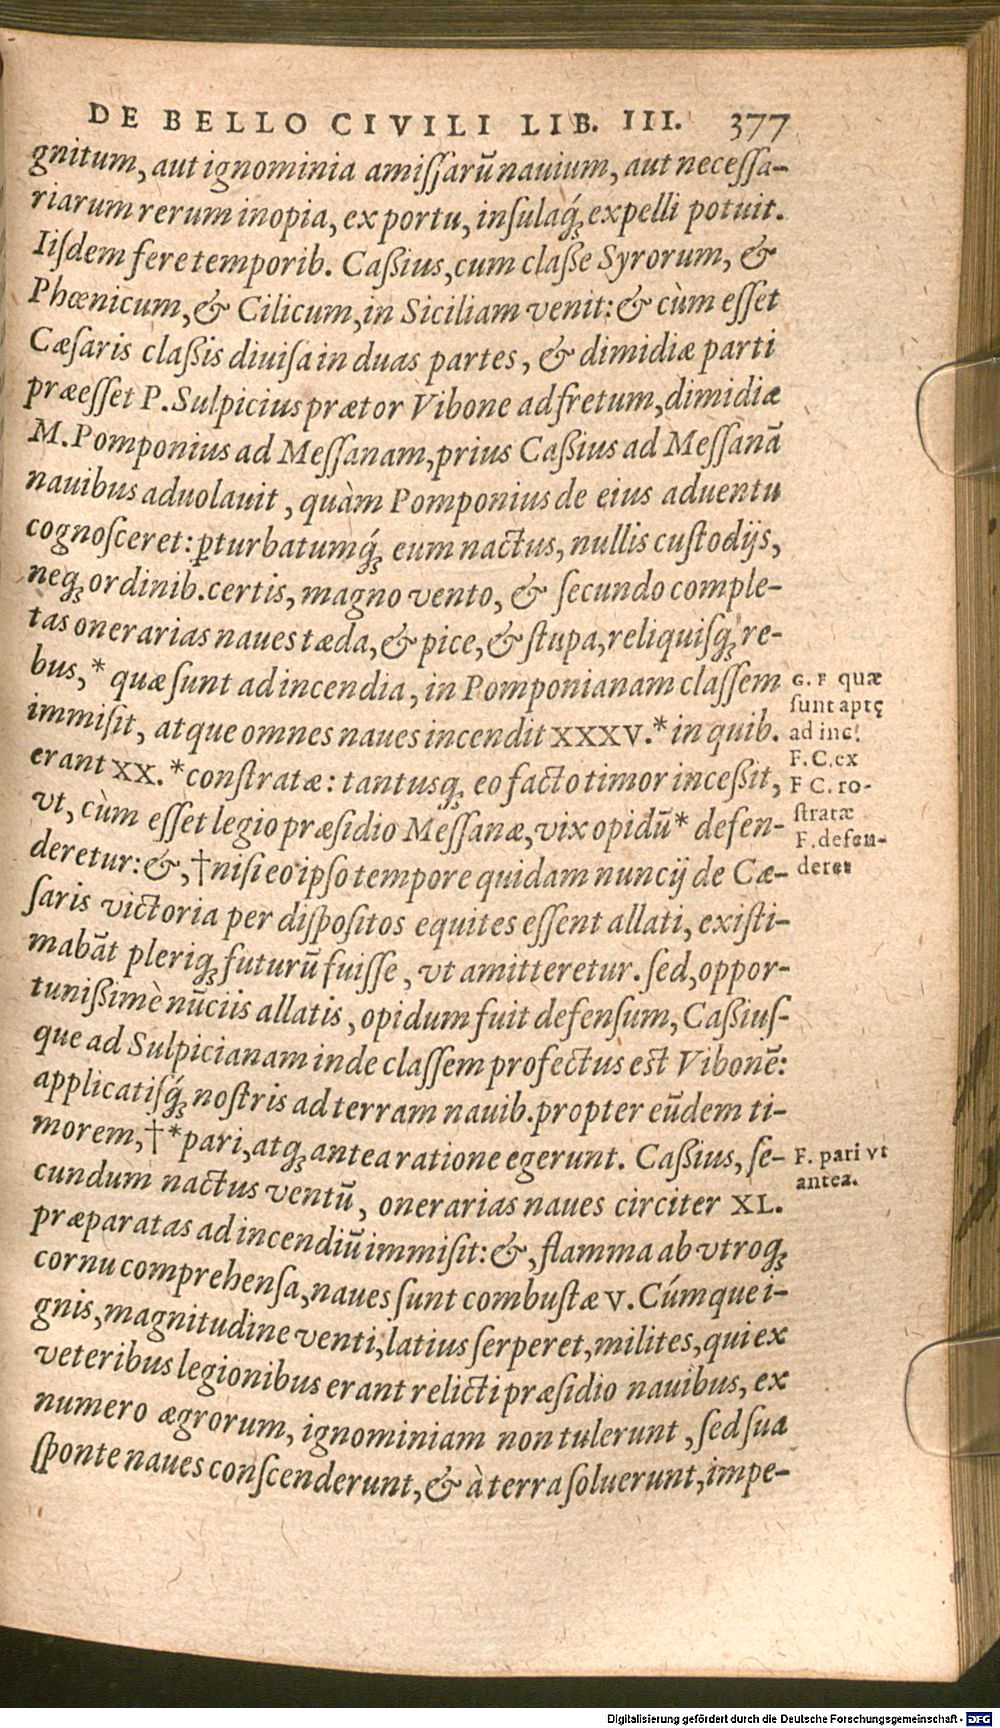 DE BELLO CIVILI LIB. III. 377
gnitum, aut ignominia amiſſarũ nauium, aut neceſſa-
riarum rerum inopia, ex portu, inſulaq́; expelli potuit.
Iiſdem fere temporib. Caßius, cum claſſe Syrorum, &
Phœnicum, & Cilicum, in Siciliam venit: & cùm eſſet
Cæſaris claßis diuiſa in duas partes, & dimidiæ parti
præeſſet P. Sulpicius prætor Vibone ad fretum, dimidiæ
M. Pomponius ad Meſſanam, prius Caßius ad Meſſanã
nauibus aduolauit, quàm Pomponius de eius aduentu
cognoſceret: ꝑturbatumq́; eum nactus, nullis cuſtodijs,
neq; ordinib. certis, magno vento, & ſecundo comple-
tas onerarias naues tæda, & pice, & ſtupa, reliquiſq; re-
bus, * quæ ſunt ad incendia, in Pomponianam claſſem
immiſit, atque omnes naues incendit XXXV. * in quib.
erant XX. * conſtratæ: tantusq; eo facto timor inceßit,
vt, cùm eſſet legio præſidio Meſſanæ, vix opidũ * defen-
deretur: &, † niſi eo ipſo tempore quidam nuncij de Cæ-
ſaris victoria per diſpoſitos equites eſſent allati, exiſti-
mabãt pleriq; futurũ fuiſſe, vt amitteretur. ſed, oppor-
tunißimè nũciis allatis, opidum fuit defenſum, Caßiuſ-
que ad Sulpicianam inde claſſem profectus eſt Vibonẽ:
applicatiſq́; noſtris ad terram nauib. propter eũdem ti-
morem, † * pari, atq; antea ratione egerunt. Caßius, ſe-
cundum nactus ventũ, onerarias naues circiter XL.
præparatas ad incendiũ immiſit: &, flamma ab vtroq;
cornu comprehenſa, naues ſunt combuſtæ V. Cúmque i-
gnis, magnitudine venti, latius ſerperet, milites, qui ex
veteribus legionibus erant relicti præſidio nauibus, ex
numero ægrorum, ignominiam non tulerunt, ſed ſua
ſponte naues conſcenderunt, & à terra ſoluerunt, impe-
G. F quæ
ſunt aptę
ad inc.
F. C. ex
F C. ro-
ſtratæ
F. defen-
deret
F. pari vt
antea.
Digitalisierung gefördert durch die Deutsche Forschungsgemeinschaft - DFG